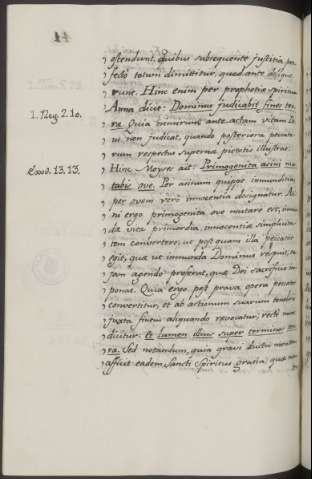 ostendunt, quibus subsequente justitia per-
fecto totum dimittitur, quod ante deliqve-
runt. Hinc enim per prophetiæ spiritum
1. Reg. 2. 10. Anna dicit: Dominus judicabit fines ter-
ra. Quia nimirum ante actam vitam Do-
m non judicat, quando posteriora peccato-
rum respectus supernæ pietatis illustrat.
Exod. 13. 13. Hinc Moyses ait: Primogenita asini mu-
tabis ove. Per asinum quippe immunditia
per ovem verò innocentia designatur. Asi-
ni ergo primogenita ove mutare est, immun-
da vitæ primordia, innocentiæ simplicita-
tem convertere, ut post quam illa peccator
egit, quæ ut immunda Dominus respuit, ea
jam agendo proferat, quæ Dei sacrificio im-
ponat. Quia ergo post prava opera peccator
convertitur, et ab actionum suarum tenebris
juxta finem aliquando revocatur, rectè nunc
dicitur: et lumen illius super terminos ter-
ra. Sed notandum, quia gravi luctu mentem
afficit eadem Sancti Spiritus gratia, quæ